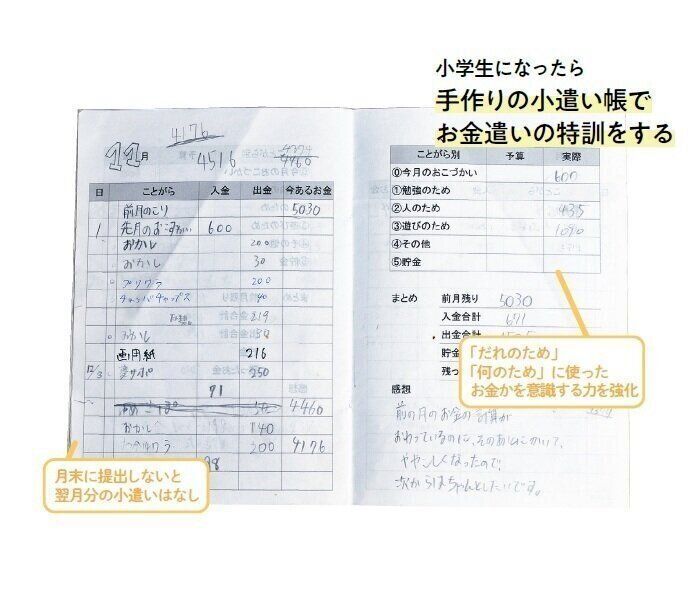 小学生になったら
手作りの小遣い帳で
お金遣いの特訓をする
4176
11月
4516
4460
日 ことがら 入金 出金 今あるお金
前月のこり 5030
1 先月のおこづかい 600
おかし 200
おかし 30
プリクラ 200
チュッパチャップス 40
219
おかし
画用紙 216
12/3 250
71
4460
おかし 140
200 4176
月末に提出しないと
翌月分の小遣いはなし
ことがら別 予算 実際
⓪今月のおこづかい 600
①勉強のため
②人のため 435
③遊びのため 1090
④その他
⑤貯金
まとめ 前月残り 5030
入金合計 671
出金合計
貯金
残っ
「だれのため」
「何のため」に使った
お金かを意識する力を強化
感想
前の月のお金の計算が
おわっているのに、そのあとにかいて、
ややこしくなったので、
次からはちゃんとしたいです。